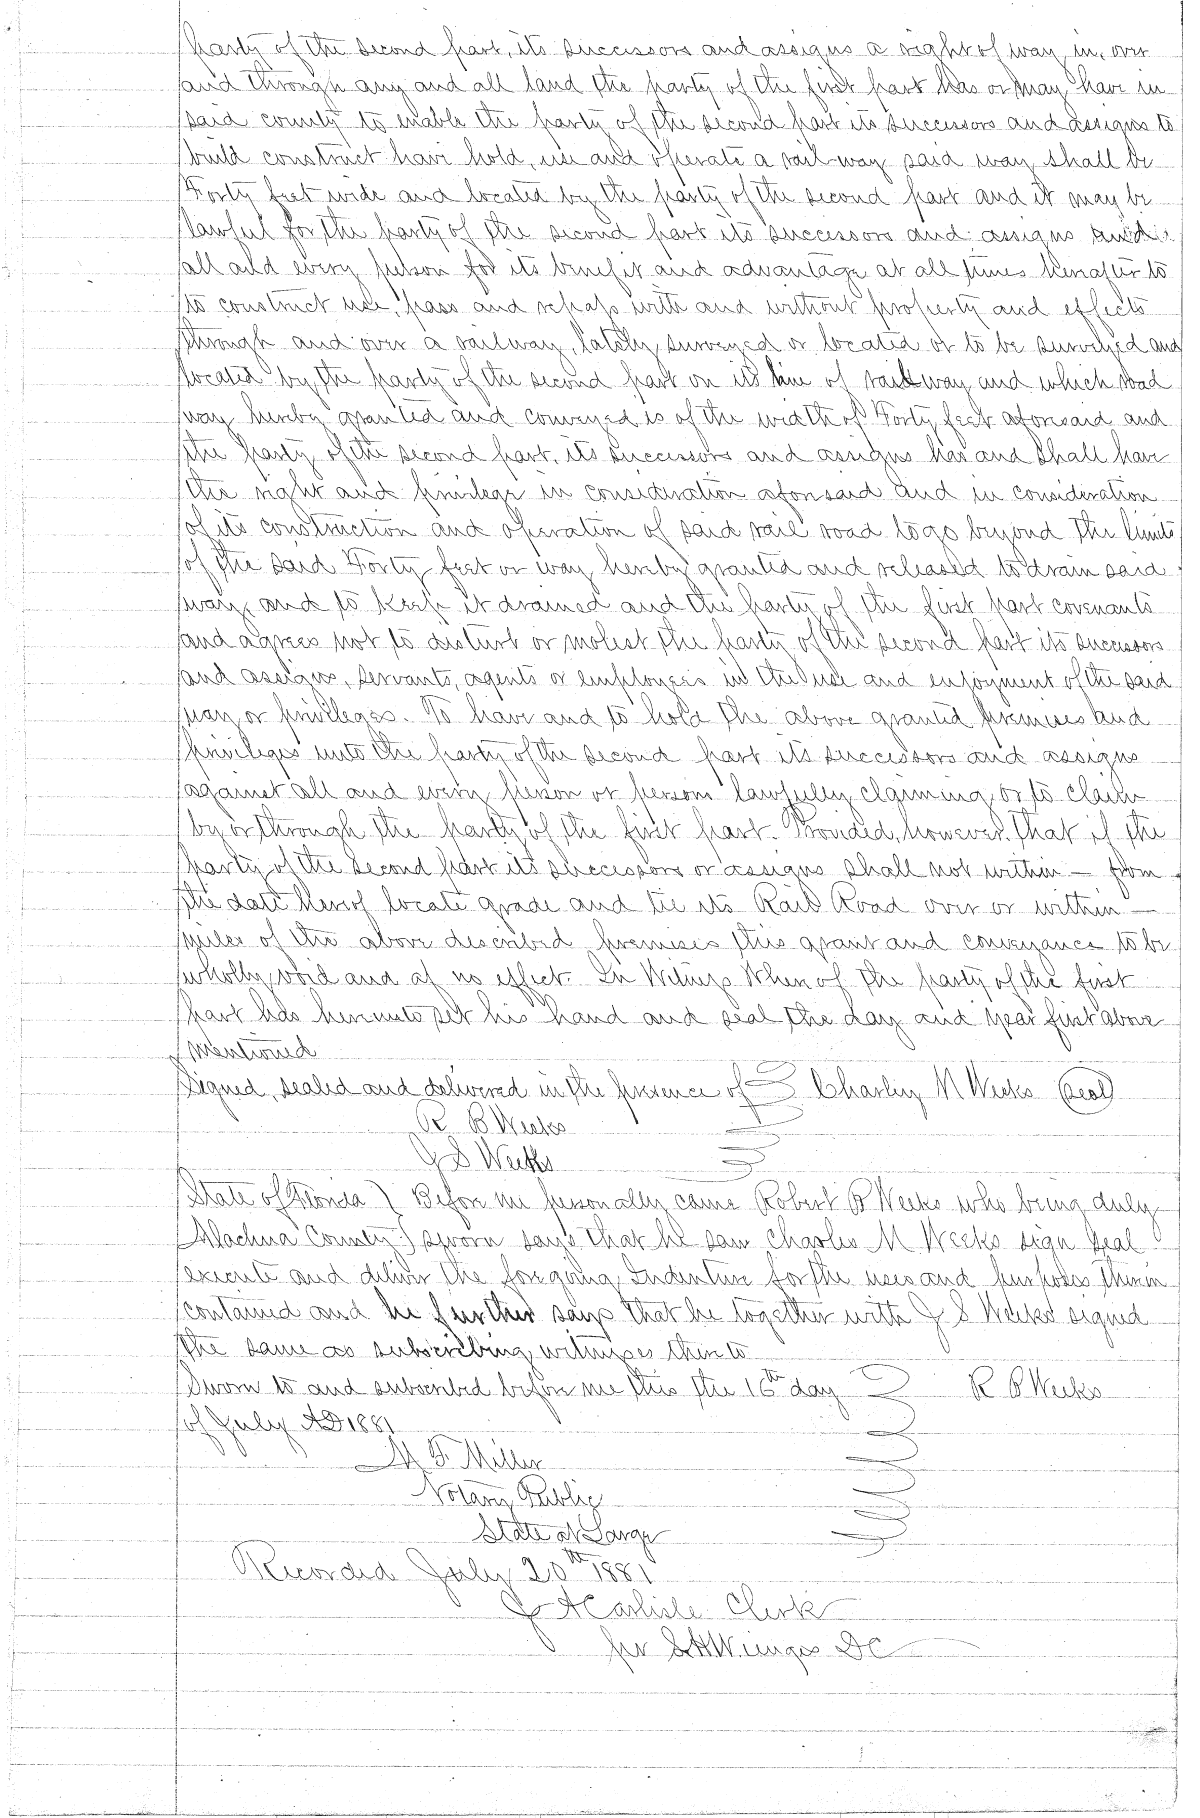 party of the second part, its successors and assigns a right of way, in, over
and through any and all land the party of the first part has or may have in
said county to enable the party of the second part its successors and assigns to
build construct have hold, use and operate a rail way said way shall be
Forty feet wide and located by the party of the second part and it may be
lawful for the party of the second part its successors and assigns and
all and every person for its benefit and advantage at all times hereafter to
to construct use, pass and repass with and without property and effects
through and over a railway, lately surveyed or located or to be surveyed and
located by the party of the second part on its line of railway and which road
way hereby granted and conveyed is of the width of Forty feet aforesaid and
the party of the second part, its successors and assigns has and shall have
the right and privilege in consideration aforesaid and in consideration
of its construction and operation of said rail road to go beyond the limits
of the said Forty feet or way hereby granted and released to drain said
way, and to keep it drained and the party of the first part covenants
and agrees not to disturb or molest the party of the second part its successors
and assigns, servants, agents or employees in the use and enjoyment of the said
way or privileges. To have and to hold the above granted premises and
privileges unto the party of the second part its successors and assigns
against all and every person or persons lawfully claiming or to claim
by or through the party of the first part. Provided, however, that if the
party of the second part its successors or assigns shall not within — from
the date hereof locate grade and tie its Rail Road over or within —
miles of the above described premises this grant and conveyance to be
wholly void and of no effect. In Witness Whereof the party of the first
part has hereunto set his hand and seal the day and year first above
mentioned
Signed, sealed and delivered in the presence of Charley M Weeks (Seal)
R B Weeks
J S Weeks
State of Florida } Before me personally came Robert B Weeks who being duly
Alachua County } sworn says that he saw Charles M Weeks sign seal
execute and deliver the foregoing Indenture for the uses and purposes therein
contained and he further says that he together with J S Weeks signed
the same as subscribing witnesses thereto
Sworn to and subscribed before me this the 16th day R B Weeks
of July AD 1881
M F Miller
Notary Public
State at Large
Recorded July 20th 1881
J A Carlisle Clerk
per S H Wienges DC